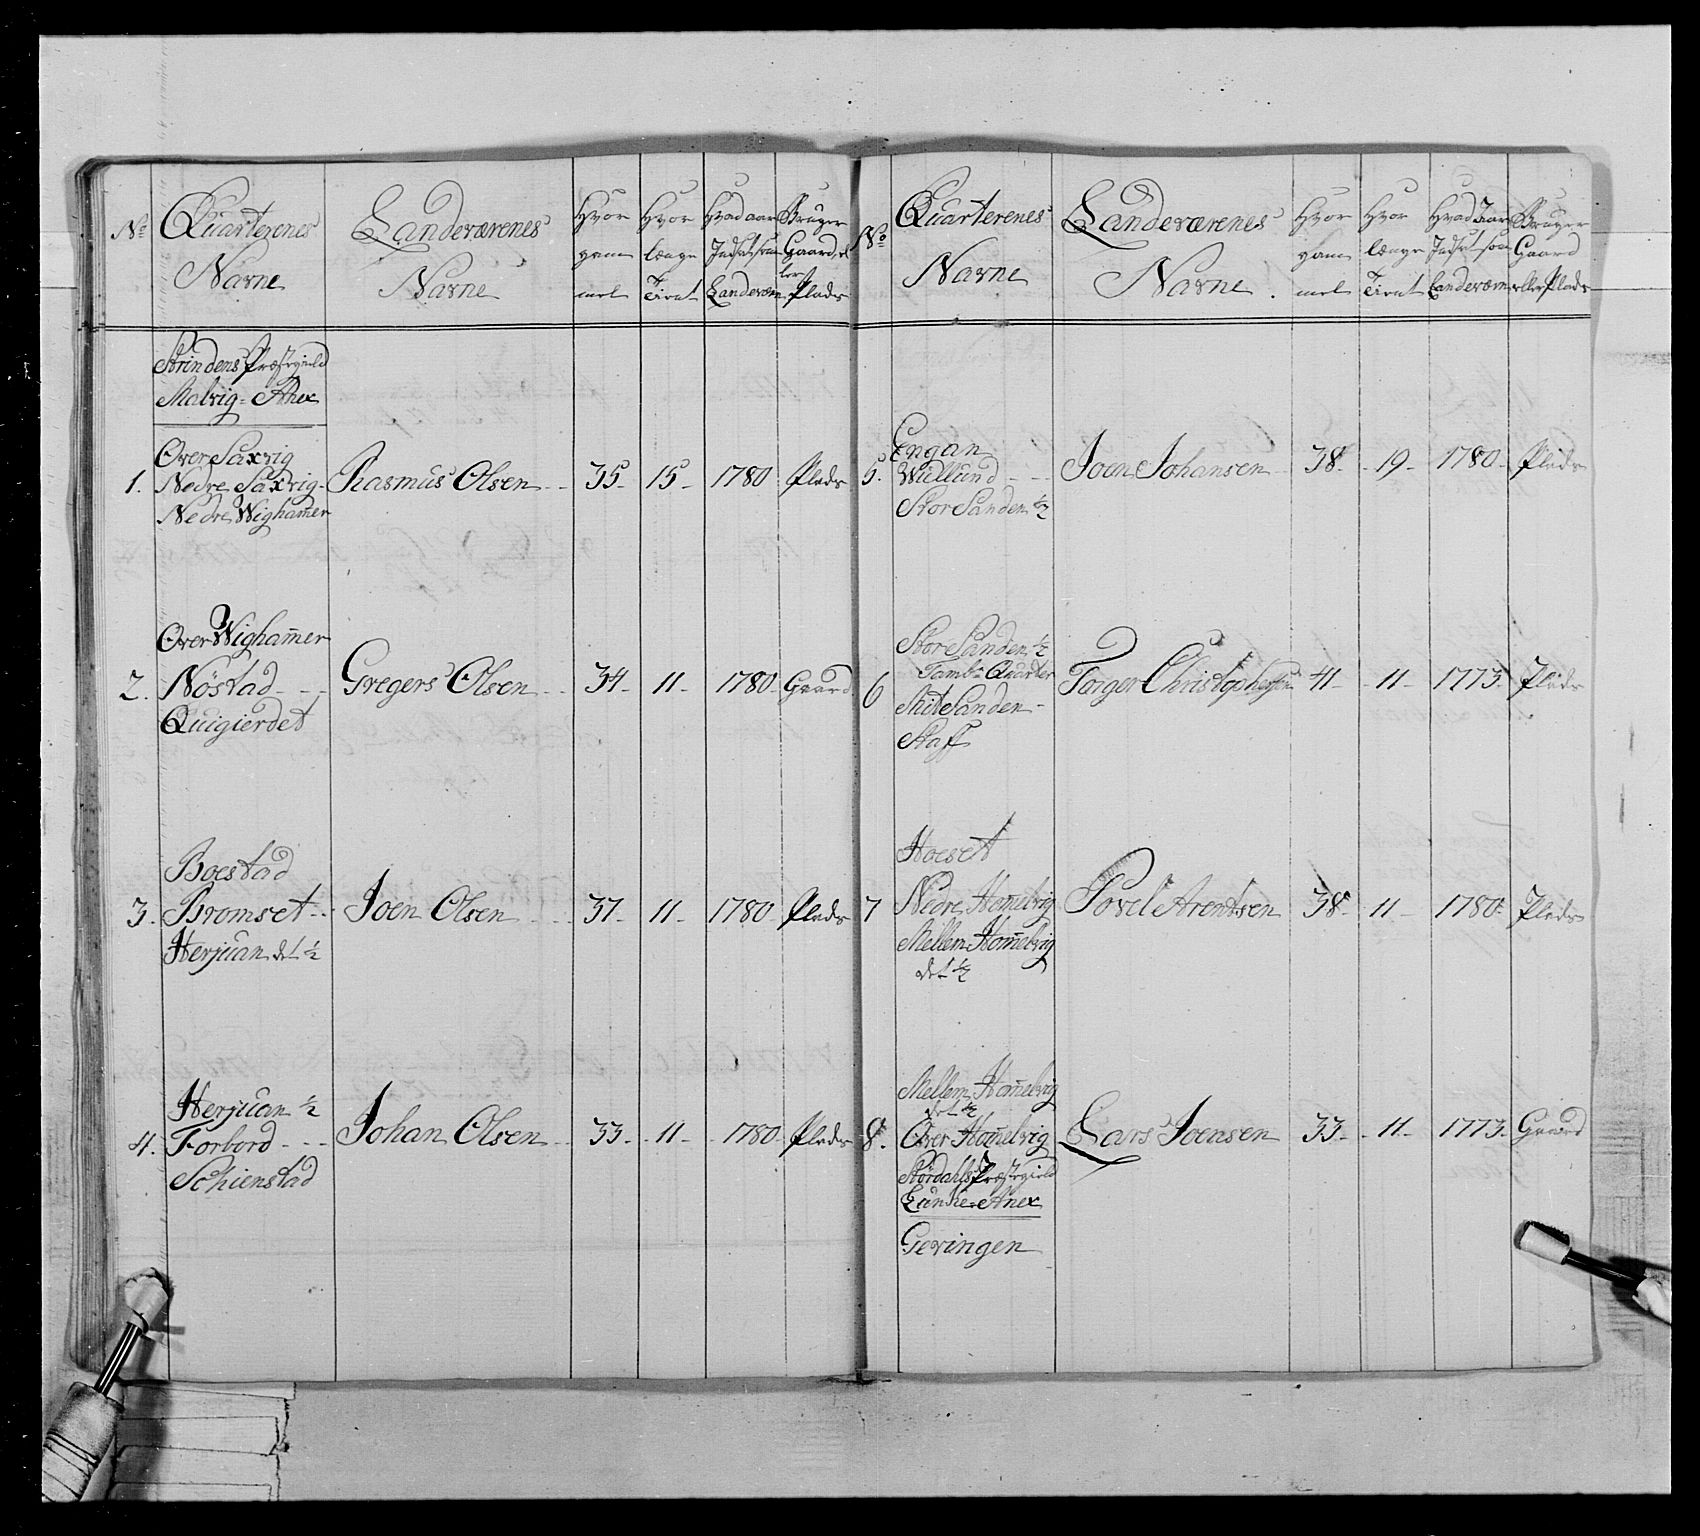 No
Quarterenes
Navne
Landeværenes
Navne
Hvor
gam
mel
Hvor
længe
Tient
Hvad aar
Indsat som
Landeværn
Bruger
Gaard, el
ler
Plads
Strindens Præstegield
Malvig= Anex
1.
Over Saxvig
Nedre Saxvig-
Nedre Wighamer
Rasmus Olsen - - 35- 15- 1780 Plads
2.
Over Wighamer
Nøstad - - -
Quigierdet
Gregers Olsen - - 34- 11- 1780 Gaard
3.
Boestad
Bromset - -
Herjuan det ½
Joen Olsen - - 37- 11- 1780- Plads
4.
Herjuan ½
Forbord - - -
Schienstad
Johan Olsen - - 33- 11- 1780- Plads
No
Quarterenes
Navne
Landeværenes
Navne.
Hvor
gam
mel
Hvor
længe
Tient
Hvad Aar
Indsat som
Landeværn
Bruger
Gaard
eller Plads
5.
Engan
Wullund - - -
Stor Sanden ½
Joen Johansen 38- 19- 1780- Plads
6
Stor Sanden ½
Tamb: Quarter
Mit Sanden -
Staff
Torger Christophersen 41- 11- 1773- Plads
7
Hoeset
Nedre Homelvig
Mellem Homelvig
det ½
Povel Arentsen 38- 11- 1780- Plads
8.
Mellem Homelvig
det ½
Over Homelvig
Størdahls Præstegield
Laanke Anex
Gevingen
Lars Joensen 33- 11- 1773- Gaard